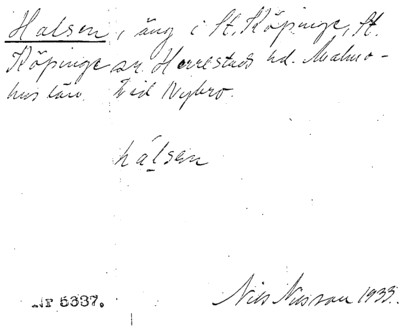 Halsen, äng i St. Köpinge, St.
Köpinge sn. Herrestads hd. Malmö-
hus län. Vid Nybro.
hálsen
Nils Nilsson 1933.
NF 5337.